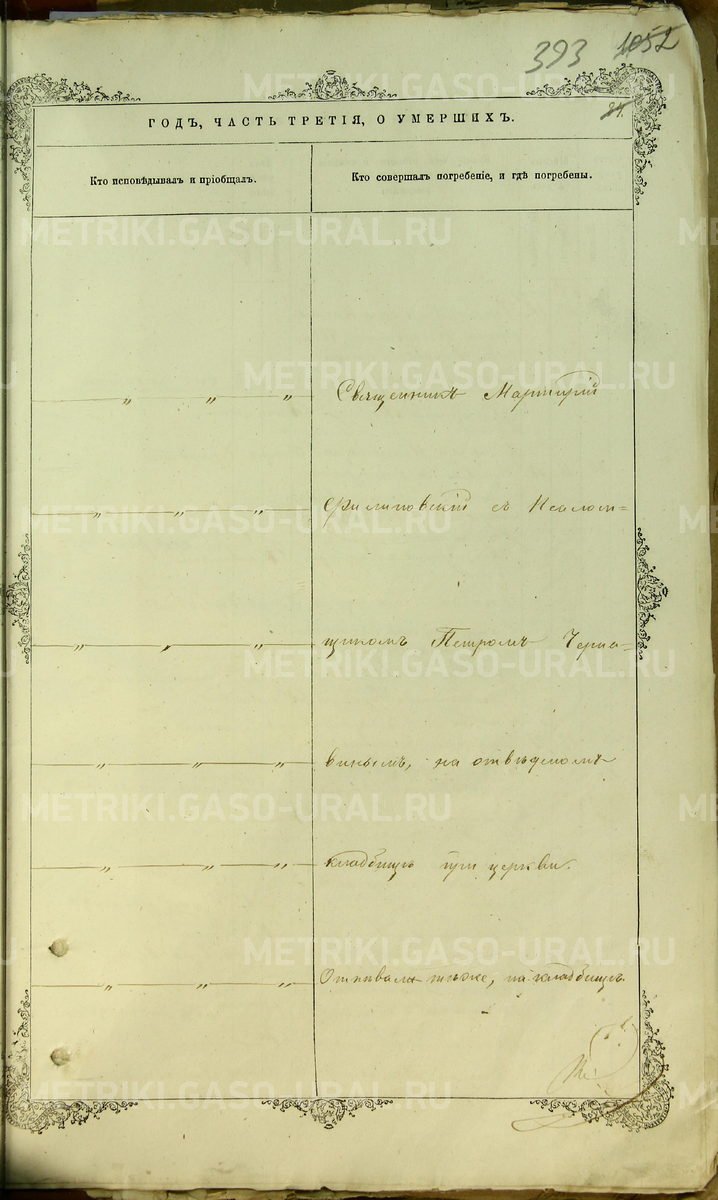 393 1052
84.
ГОДЪ, ЧАСТЬ ТРЕТІЯ, О УМЕРШИХЪ.
Кто исповѣдывалъ и пріобщалъ.
Кто совершалъ погребеніе, и гдѣ погребены.
Священникъ Мартирій
Филиповскій съ Псалом=
щикомъ Петромъ Черна=
винымъ, на отведеномъ
кладбищѣ при церкви.
Отпѣвали тѣже, на кладбищѣ.
METRIKI.GASO-URAL.RU